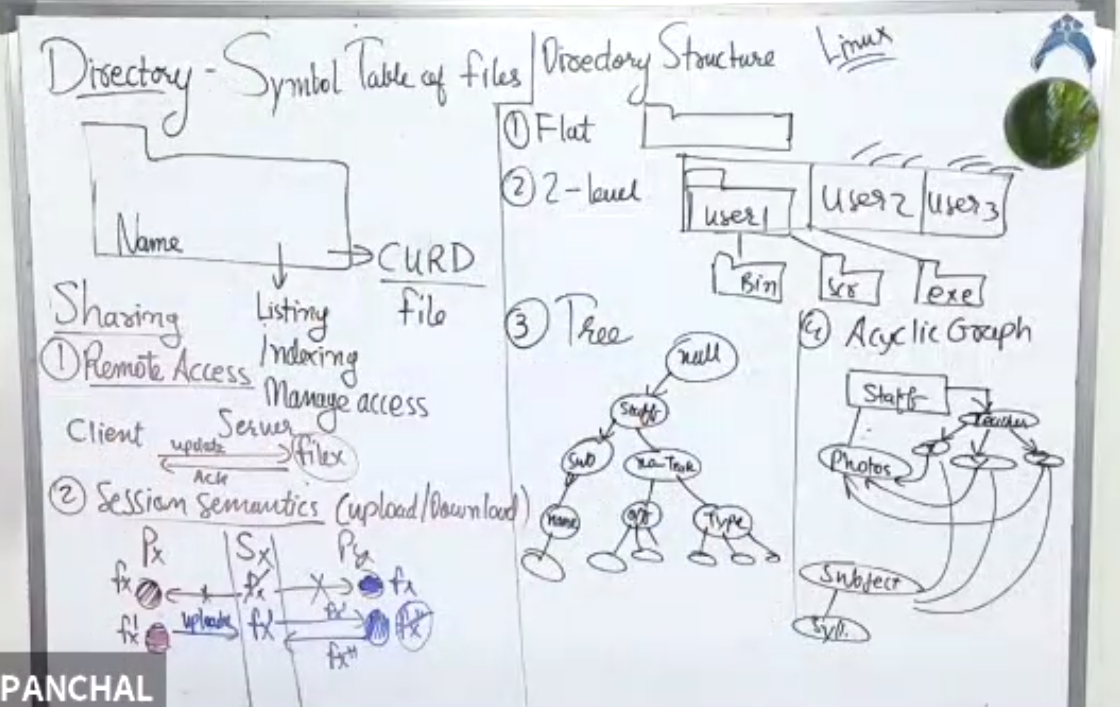 Directory - Symbol Table of files
Name
CURD
file
Listing
Indexing
Manage access
Sharing
① Remote Access
Client
Server
update
Ack
filex
② Session Semantics (upload/Download)
Px Sx Py
fx fx fx
fx' uploads fx' fx' fx''
fx''
Directory Structure
Linux
① Flat
② 2-level
User1 User2 User3
Bin Scr exe
③ Tree
null
Staff
Sub
Name
Type
④ Acyclic Graph
Staff
Teacher
Photos
Subject
Syll.
PANCHAL